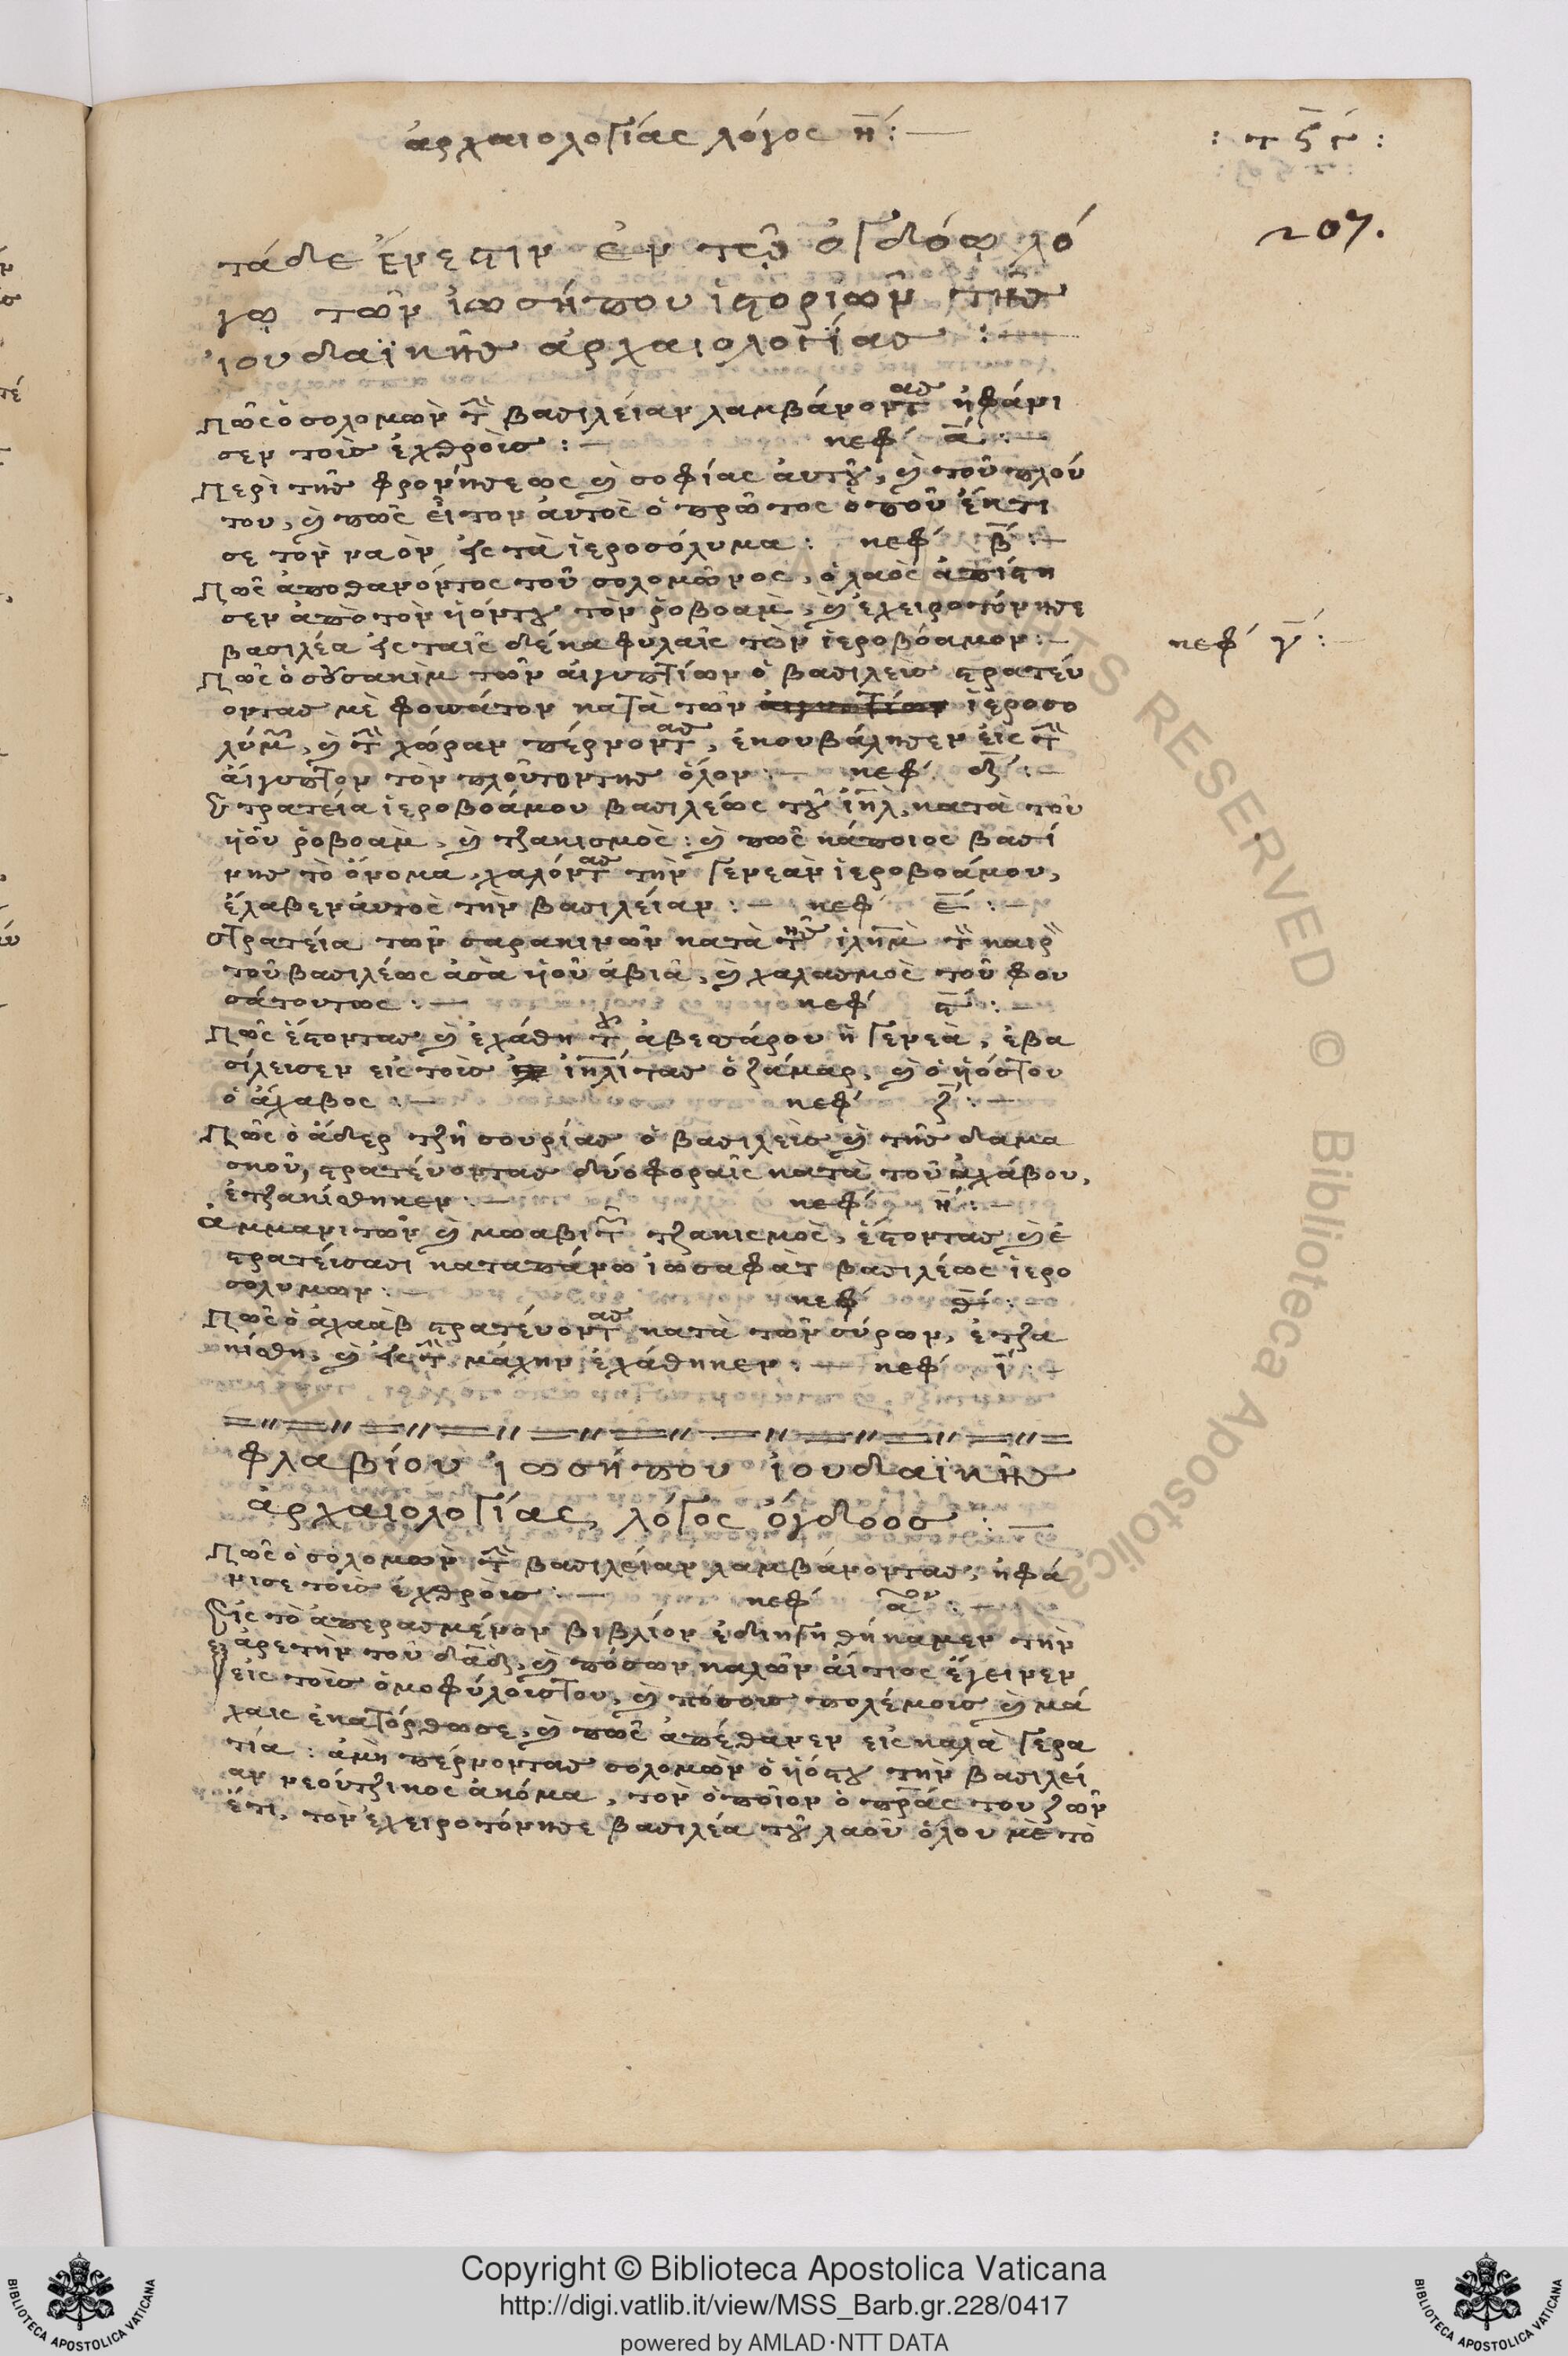 ἀρχαιολογίας λόγος η̄: —
207.
τάδε ἔνεστιν ἐν τῷ ὀγδόῳ λό
γῳ τῶν ἰωσήπου ἱστοριῶν τῆς
ἰουδαϊκῆς ἀρχαιολογίας : —
Πῶς ὁ σολομὼν τὴ βασιλείαν λαμβάνοντας ἠφάνι
σεν τοὺς ἐχθροὺς : — κεφ´ ᾱ: —
Περὶ τῆς φρονήσεως ϗ σοφίας αὐτοῦ, ϗ τοῦ πλού
του, ϗ πῶς εἶτον αὐτὸς ὁ πρῶτος ὁποῦ ἔκτι
σε τὸν ναὸν εἰς τὰ ἱεροσόλυμα : κεφ´ β̄: —
Πῶς ἀποθανόντος τοῦ σολομῶνος, ὁ λαὸς ἀπέστη
σεν ἀπὸ τὸν ἡόντου τὸν ῥοβοὰμ, ϗ ἐχειροτόνησε
βασιλέα εἰς ταῖς δέκα φυλαῖς τὼν ἱεροβόαμον: — κεφ´ γ̄: —
Πῶς ὁ σούσακὶμ τῶν αἰγυπτίων ὁ βασιλεὺς στρατεύ
οντας μὲ φωσάτον κατὰ τῶν αἰγυπτίων ἱεροσο
λύμ, ϗ τὴ χώραν πέρνοντας, ἐκουβάλησεν εἰς τὴ
αἴγυπτον τὸν πλοῦτοντης ὅλον: — κεφ´ δ̄: —
Στρατεία ἱεροβοάμου βασιλέως τοῦ ἰηλ, κατὰ τοῦ
ἡοῦ ῥοβοὰμ, ϗ τζακισμὸς: ϗ πῶς κάποιος βασί
νης τὸ ὄνομα, χαλόντας τὴν γενεὰν ἱεροβοάμου,
ἔλαβεν αὐτὸς τὴν βασιλείαν : — κεφ´ ε̄ : —
Στρατεία τῶν σαρακινῶν κατὰ τῆς ἰλημ τὸ καιρὸ
τοῦ βασιλέως ἀσὰ ἡοῦ ἀβιᾶ, ϗ χαλασμὸς τοῦ φου
σάτουντως : — κεφ´ ϛ̄ : —
Πῶς ἔστοντας ϗ ἐχάθη τοῦ ἀβεσάρου ἡ γενεὰ, ἐβα
σίλεισεν εἰς τοὺς ἰηλίτας ὁ ζάμαρ, ϗ ὁ ἡόςτου
ὁ ἄχαβος : — κεφ´ ζ̄ : —
Πῶς ὁ ἄδερ τζῆ σουρίας ὁ βασιλεὺς ϗ τῆς δαμα
σκοῦ, στρατεύοντας δύο φοραῖς κατὰ τοῦ ἀχάβου,
ἐτζακίσθηκεν : — κεφ´ η̄ : —
Ἀμμανιτῶν ϗ μωαβιτ τζακισμὸς, ἔστοντας ϗ ἐ
στρατεύσασι καταπάνω ἰωσαφὰτ βασιλέως ἱερο
σολύμων : — κεφ´ θ̄ : —
Πῶς ὁ ἀχαὰβ στρατεύοντας κατὰ τῶν σύρων, ἐτζα
κίσθη, ϗ εἰς τὴ μάχην ἐχάθηκεν : — κεφ´ ῑ : —
φλαβίου ἰωσήπου ἰουδαϊκῆς
ἀρχαιολογίας, λόγος ὄγδοος : —
Πῶς ὁ σολομὼν τὴ βασιλείαν λαμβάνοντας, ἠφά
νισε τοὺς ἐχθροὺς : — κεφ´ ᾱον : —
Εἰς τὸ ἀπερασμένον βιβλίον ἐδιηγηθήκαμεν τὴν
ἀρετὴν τοῦ δᾱδ, ϗ πόσων καλῶν αἴτιος ἔγεινεν
εἰς τοὺς ὁμοφύλουςτου, ϗ πόσους πολέμους ϗ μά
χαις ἐκατόρθωσε, ϗ πῶς ἀπέθανεν εἰς καλὰ γερα
τία: ἀμὴ πέρνοντας σολομὼν ὁ ἡόςτου τὴν βασιλεί
αν νεούτζικος ἀκόμα, τὸν ὁποῖον ὁ πρᾱς του ζῶν
ἔτι, τὸν ἐχειροτόνησε βασιλέα τοῦ λαοῦ ὅλου μὲ τὸ
Copyright © Biblioteca Apostolica Vaticana
http://digi.vatlib.it/view/MSS_Barb.gr.228/0417
powered by AMLAD·NTT DATA